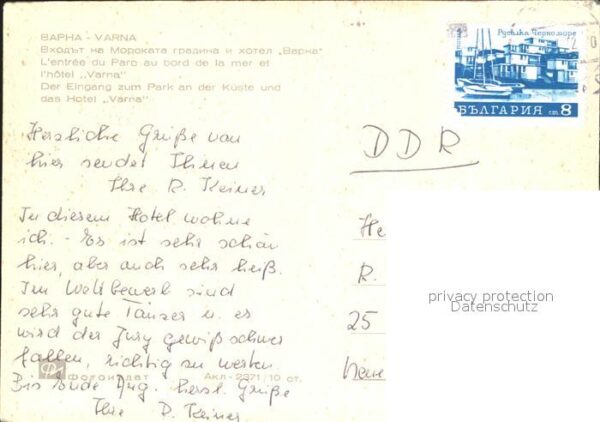 ВАРНА - VARNA
Входът на Морската градина и хотел „Варна"
L'entrée du Parc au bord de la mer et
l'hôtel „Varna"
Der Eingang zum Park an der Küste und
das Hotel „Varna"
Русалка Черноморие
БЪЛГАРИЯ ст 8
Herzliche Grüße von
hier sendet Ihnen
Ihre R. Keiner
DDR
In diesem Hotel wohne
ich. - Es ist sehr schön
hier, aber auch sehr heiß.
Im Wettbewerb sind
sehr gute Tänzer u. es
wird der Jury gewiß schwer
fallen, richtig zu werten.
Bis Ende Aug. herzl. Grüße
Ihre R. Keiner
He
R.
25
privacy protection
Datenschutz
Фотоиздат
Акл-2371/10 ст.